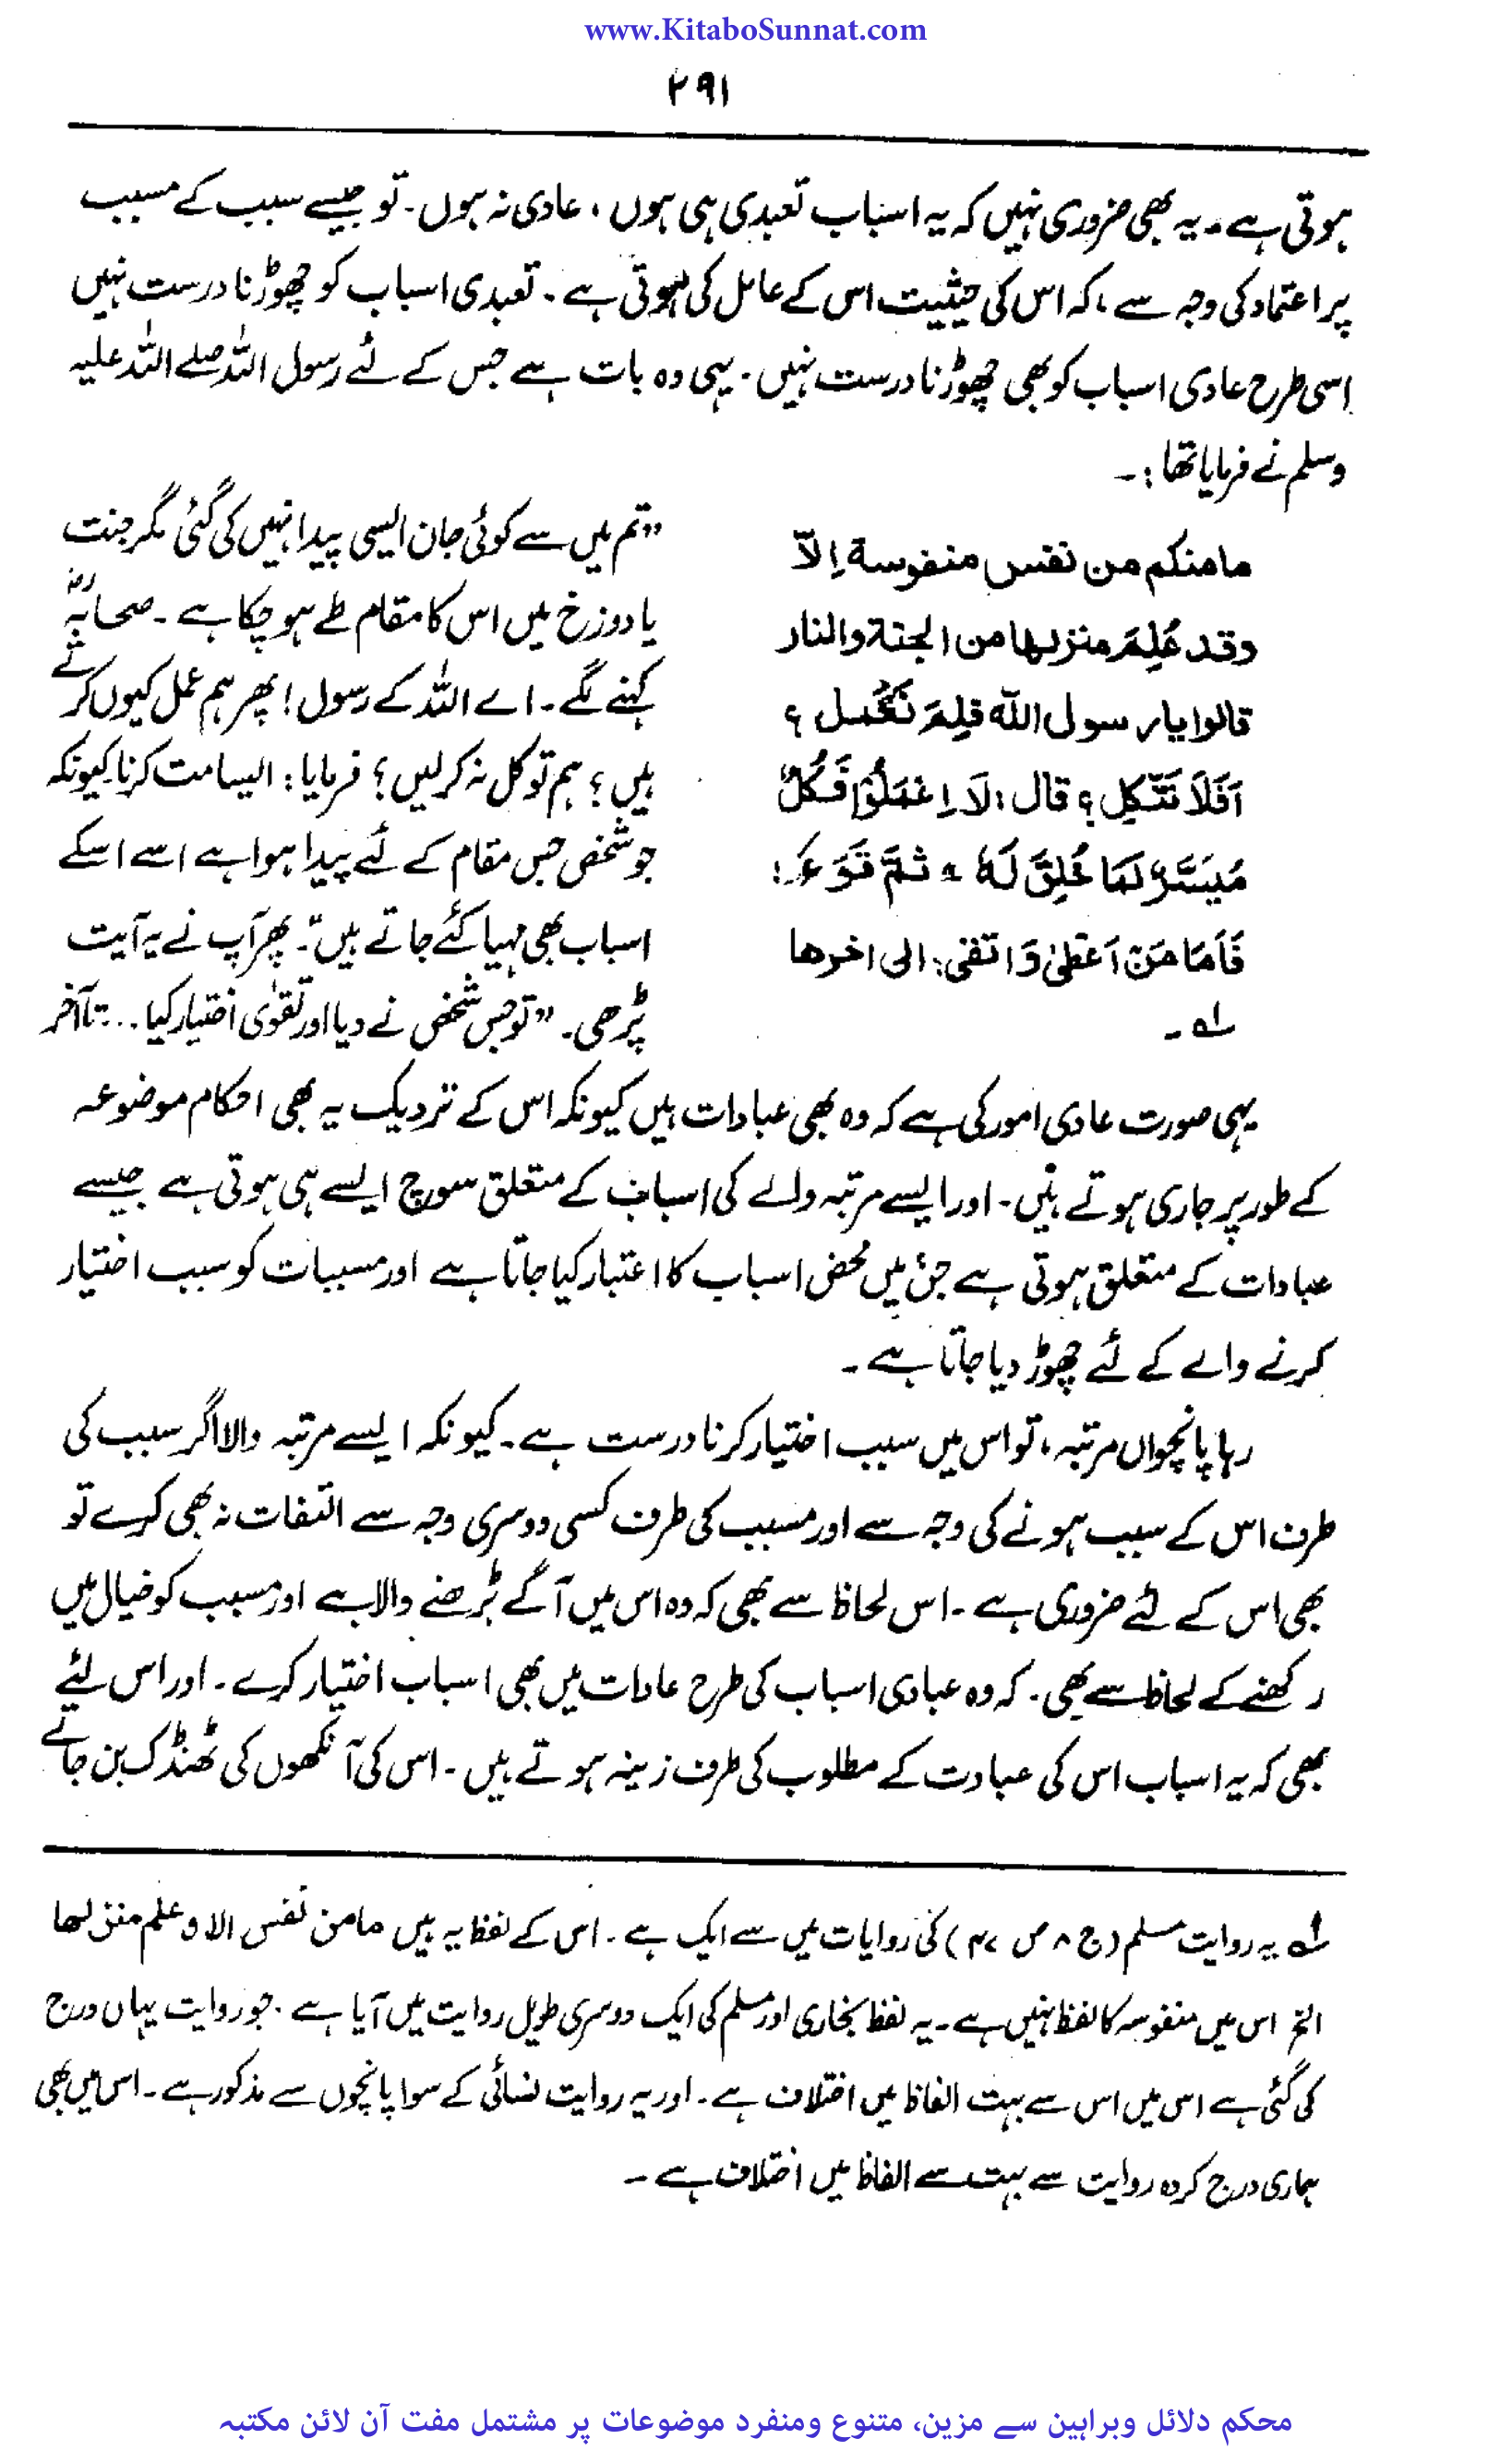 www.KitaboSunnat.com
۲۹۱
ہوتی ہے۔ یہ بھی ضروری نہیں کہ یہ اسباب تعبدی ہی ہوں ، عادی نہ ہوں۔ تو جیسے سبب کے مسبب
پر اعتماد کی وجہ سے ، کہ اس کی حیثیت اس کے عامل کی ہوتی ہے۔ تعبدی اسباب کو چھوڑنا درست نہیں
اسی طرح عادی اسباب کو بھی چھوڑنا درست نہیں۔ یہی وہ بات ہے جس کے لئے رسول اللہ صلے اللہ علیہ
وسلم نے فرمایا تھا :۔
مامنکم من نفس منفوسة اِلاّ
وقد عُلِمَ منزلها من الجنة والنار
قالوا یا رسول اللہ فلِمَ نَعْمل ؟
اَفَلاَ نَتَّکِل ؟ قال: لَا اِعْمَلُوْا فَکُلٌّ
مُیَسَّرٌ لِمَا خُلِقَ لَهٗ ۔ ثمَّ قَرَءَ :
فَاَمَّا مَنْ اَعْطیٰ وَ اتقی: الی اخرھا
لہ ۔
”تم میں سے کوئی جان ایسی پیدا نہیں کی گئی مگر جنت
یا دوزخ میں اس کا مقام طے ہو چکا ہے۔ صحابہؓ
کہنے لگے۔ اے اللہ کے رسول ! پھر ہم عمل کیوں کرتے
ہیں ؟ ہم توکل نہ کرلیں ؟ فرمایا : ایسا مت کرنا کیونکہ
جو شخص جس مقام کے لئے پیدا ہوا ہے اسے اسکے
اسباب بھی مہیا کئے جاتے ہیں“۔ پھر آپ نے یہ آیت
پڑھی۔ ”تو جس شخص نے دیا اور تقوٰی اختیار کیا ... تا آخر
یہی صورت عادی امور کی ہے کہ وہ بھی عبادات ہیں کیونکہ اس کے نزدیک یہ بھی احکام موضوعہ
کے طور پر جاری ہوتے ہیں۔ اور ایسے مرتبہ والے کی اسباب کے متعلق سوچ ایسے ہی ہوتی ہے جیسے
عبادات کے متعلق ہوتی ہے جن میں محض اسباب کا اعتبار کیا جاتا ہے اور مسببات کو سبب اختیار
کرنے والے کے لئے چھوڑ دیا جاتا ہے۔
رہا پانچواں مرتبہ ، تو اس میں سبب اختیار کرنا درست ہے۔ کیونکہ ایسے مرتبہ والا اگر سبب کی
طرف اس کے سبب ہونے کی وجہ سے اور مسبب کی طرف کسی دوسری وجہ سے التفات نہ بھی کرے تو
بھی اس کے لئے ضروری ہے۔ اس لحاظ سے بھی کہ وہ اس میں آگے بڑھنے والا ہے اور مسبب کو خیال میں
رکھنے کے لحاظ سے بھی۔ کہ وہ عبادی اسباب کی طرح عادات میں بھی اسباب اختیار کرے۔ اور اس لئے
بھی کہ یہ اسباب اس کی عبادت کے مطلوب کی طرف زینہ ہوتے ہیں۔ اس کی آنکھوں کی ٹھنڈک بن جاتے
لہ یہ روایت مسلم (ج ۸ ص ۴۷) کی روایات میں سے ایک ہے۔ اس کے لفظ یہ ہیں مامن نفس الا وعلم منزلها
الخ اس میں منفوسہ کا لفظ نہیں ہے۔ یہ لفظ بخاری اور مسلم کی ایک دوسری طویل روایت میں آیا ہے۔ جو روایت یہاں درج
کی گئی ہے اس میں اس سے بہت الفاظ میں اختلاف ہے۔ اور یہ روایت نسائی کے سوا پانچوں سے مذکور ہے۔ اس میں بھی
ہماری درج کردہ روایت سے بہت سے الفاظ میں اختلاف ہے۔
محکم دلائل وبراہین سے مزین، متنوع ومنفرد موضوعات پر مشتمل مفت آن لائن مکتبہ